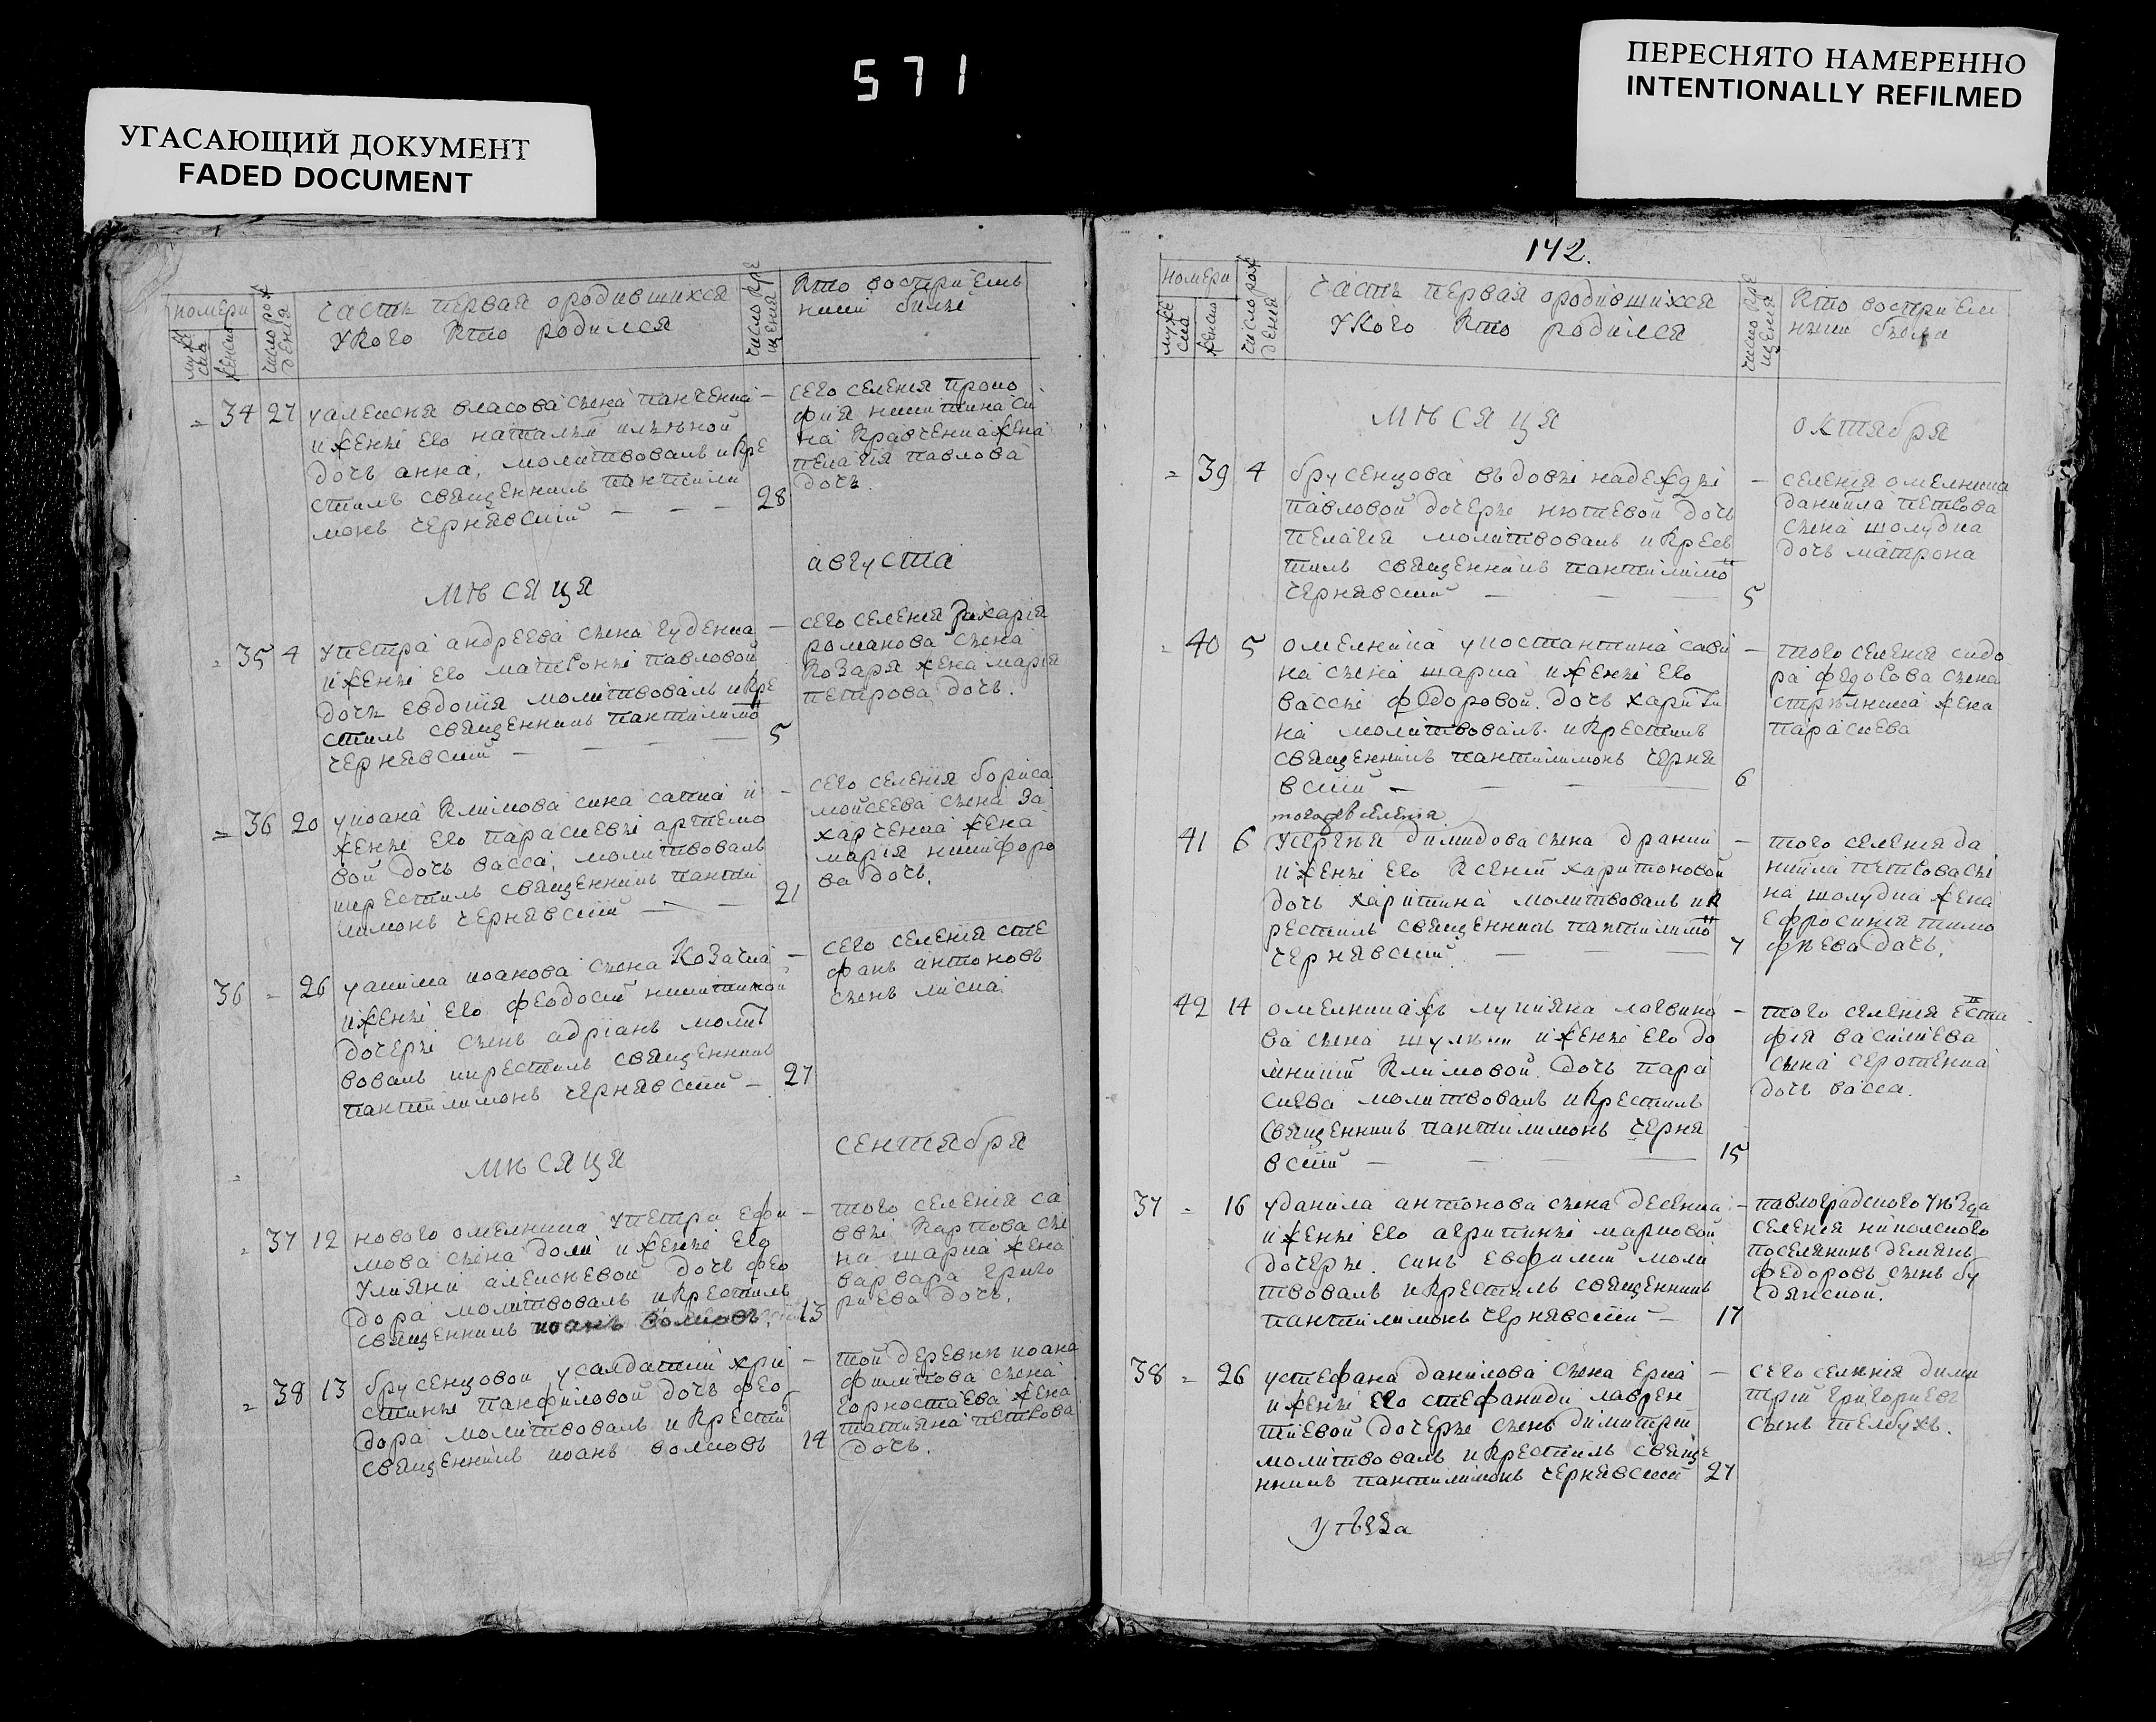 571
УГАСАЮЩИЙ ДОКУМЕНТ
FADED DOCUMENT
ПЕРЕСНЯТО НАМЕРЕННО
INTENTIONALLY REFILMED
номери
муже
ска
женска
число рож
дения
часть первая ородившихся
укого кто родился
число кре
щения
кто восприемъ
ники билы
= 34 27
уалексѣя власова сына панченка
ижены его наталыи
дочь анна, молитвовалъ икре
стилъ священникъ пантили
монъ чернявский 28
сего селения проко
фия никитина си
на кравченка жена
пелагия павлова
дочь.
мѣсяца
августа
= 35 4
упетра андреева сына гуденка
ижены его матроны павловой
дочь евдокия молитвовалъ икре
стилъ священникъ пантилимо
чернявский 5
сего селения захария
романова сына
козаря жена мария
петрова дочь.
= 36 20
уиоана климова сина сапка и
жены его параскевы артемо
вой дочь васса, молитвовалъ
икрестилъ священникъ панти
лимонъ чернявский 21
сего селения бориса
мойсеева сына за
харченка жена
мария никифоро
ва дочь.
36 = 26
уакима иоанова сына козачка
ижены его феодосии никитиной
дочеры сынъ адриянъ молит
вовалъ икрестилъ священникъ
пантилимонъ чернявский 27
сего селения сте
фанъ антоновъ
сынъ лиска
мѣсяца
сентября
= 37 12
нового омелника упетра ефи
мова сына доли ижены его
улияни алексѣевой дочь фео
дора молитвовалъ икрестилъ
священникъ иоанъ волковъ 13
того селения са
ввы карпова сы
на шарка жена
варвара григо
риева дочь.
= 38 13
брусенцовой усалдатки хри
стины панфиловой дочь фео
дора молитвовалъ и крести
священникъ иоанъ волковъ 14
той деревнѣ иоана
филипова сына
горностаева жена
татияна петрова
дочь.
142.
номери
муже
ска
женска
число рож
дения
часть первая ородившихся
укого кто родился
число кре
щения
кто восприем
ники была
мѣсяца
октября
= 39 4
брусенцова въдовы надежды
павловой дочеры дочь
пелагия молитвовалъ икрес
тилъ священникъ пантилимо
чернявский 5
селения омелника
данийла петрова
сына шолудка
дочь матрона
= 40 5
омелника укостантина сави
на сына шарка ижены его
вассы федоровой. дочь харити
на молитвовалъ икрестилъ
священникъ пантилимонъ черня
вский 6
того селения сидо
ра федорова сына
стрѣлника жена
параскева
тогожъ селения
41 6
усергѣя димидова сына драний
ижены его ксений харитоновой
дочь харитина молитвовалъ ик
рестилъ священникъ пантилимо
чернявский 7
того селения да
нийла петрова сы
на шолудка жена
ефросиния тимо
фѣева дочь.
42 14
омелникахъ лукияна логвино
ва сына шульги ижены его до
мникии климовой. дочь пара
скева молитвовалъ икрестилъ
священникъ пантилимонъ черня
вский 15
того селения еста
фия василиева
сына серотенка
дочь васса.
37 = 16
уданила антонова сына десенка
ижены его агрипины марковой
дочеры. синъ евфимий моли
твовалъ икрестилъ священникъ
пантилимонъ чернявский 17
павлоградского уѣзда
селения николского
поселянинъ демянъ
федоровъ сынъ бу
дянской.
38 = 26
устефана данилова сына ерка
ижены его стефаниди лаврен
тиевой дочеры сынъ димитрий
молитвовалъ икрестилъ свяще
нникъ пантилимонъ чернявский 27
сего селения дими
трий григориевъ
сынъ телбухъ.
уѣзда